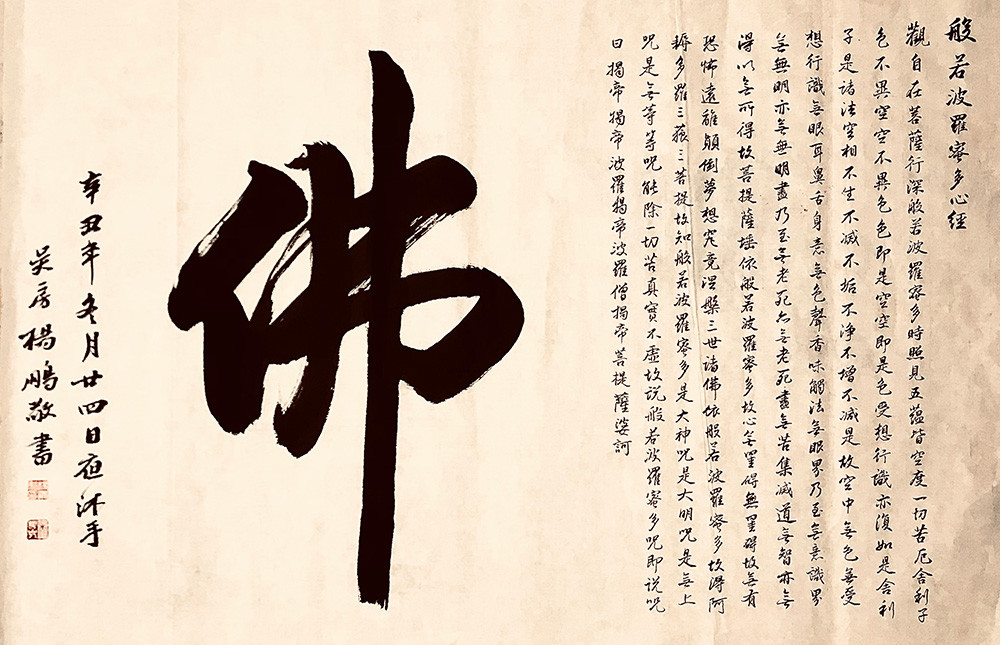 般若波羅蜜多心經
觀自在菩薩行深般若波羅蜜多時照見五蘊皆空度一切苦厄舍利子
色不異空空不異色色即是空空即是色受想行識亦復如是舍利
子是諸法空相不生不滅不垢不淨不增不減是故空中無色無受
想行識無眼耳鼻舌身意無色聲香味觸法無眼界乃至無意識界
無無明亦無無明盡乃至無老死亦無老死盡無苦集滅道無智亦無
得以無所得故菩提薩埵依般若波羅蜜多故心無罣碍無罣碍故無有
恐怖遠離顛倒夢想究竟涅槃三世諸佛依般若波羅蜜多故得阿
耨多羅三藐三菩提故知般若波羅蜜多是大神咒是大明咒是無上
咒是無等等咒能除一切苦真實不虛故説般若波羅蜜多咒即説咒
曰揭帝揭帝波羅揭帝波羅僧揭帝菩提薩婆訶
佛
辛丑年冬月廿四日夜沐手
吴房楊鵬敬書